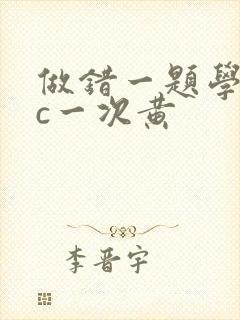 做錯一題學長
c一次黃
李晋宇